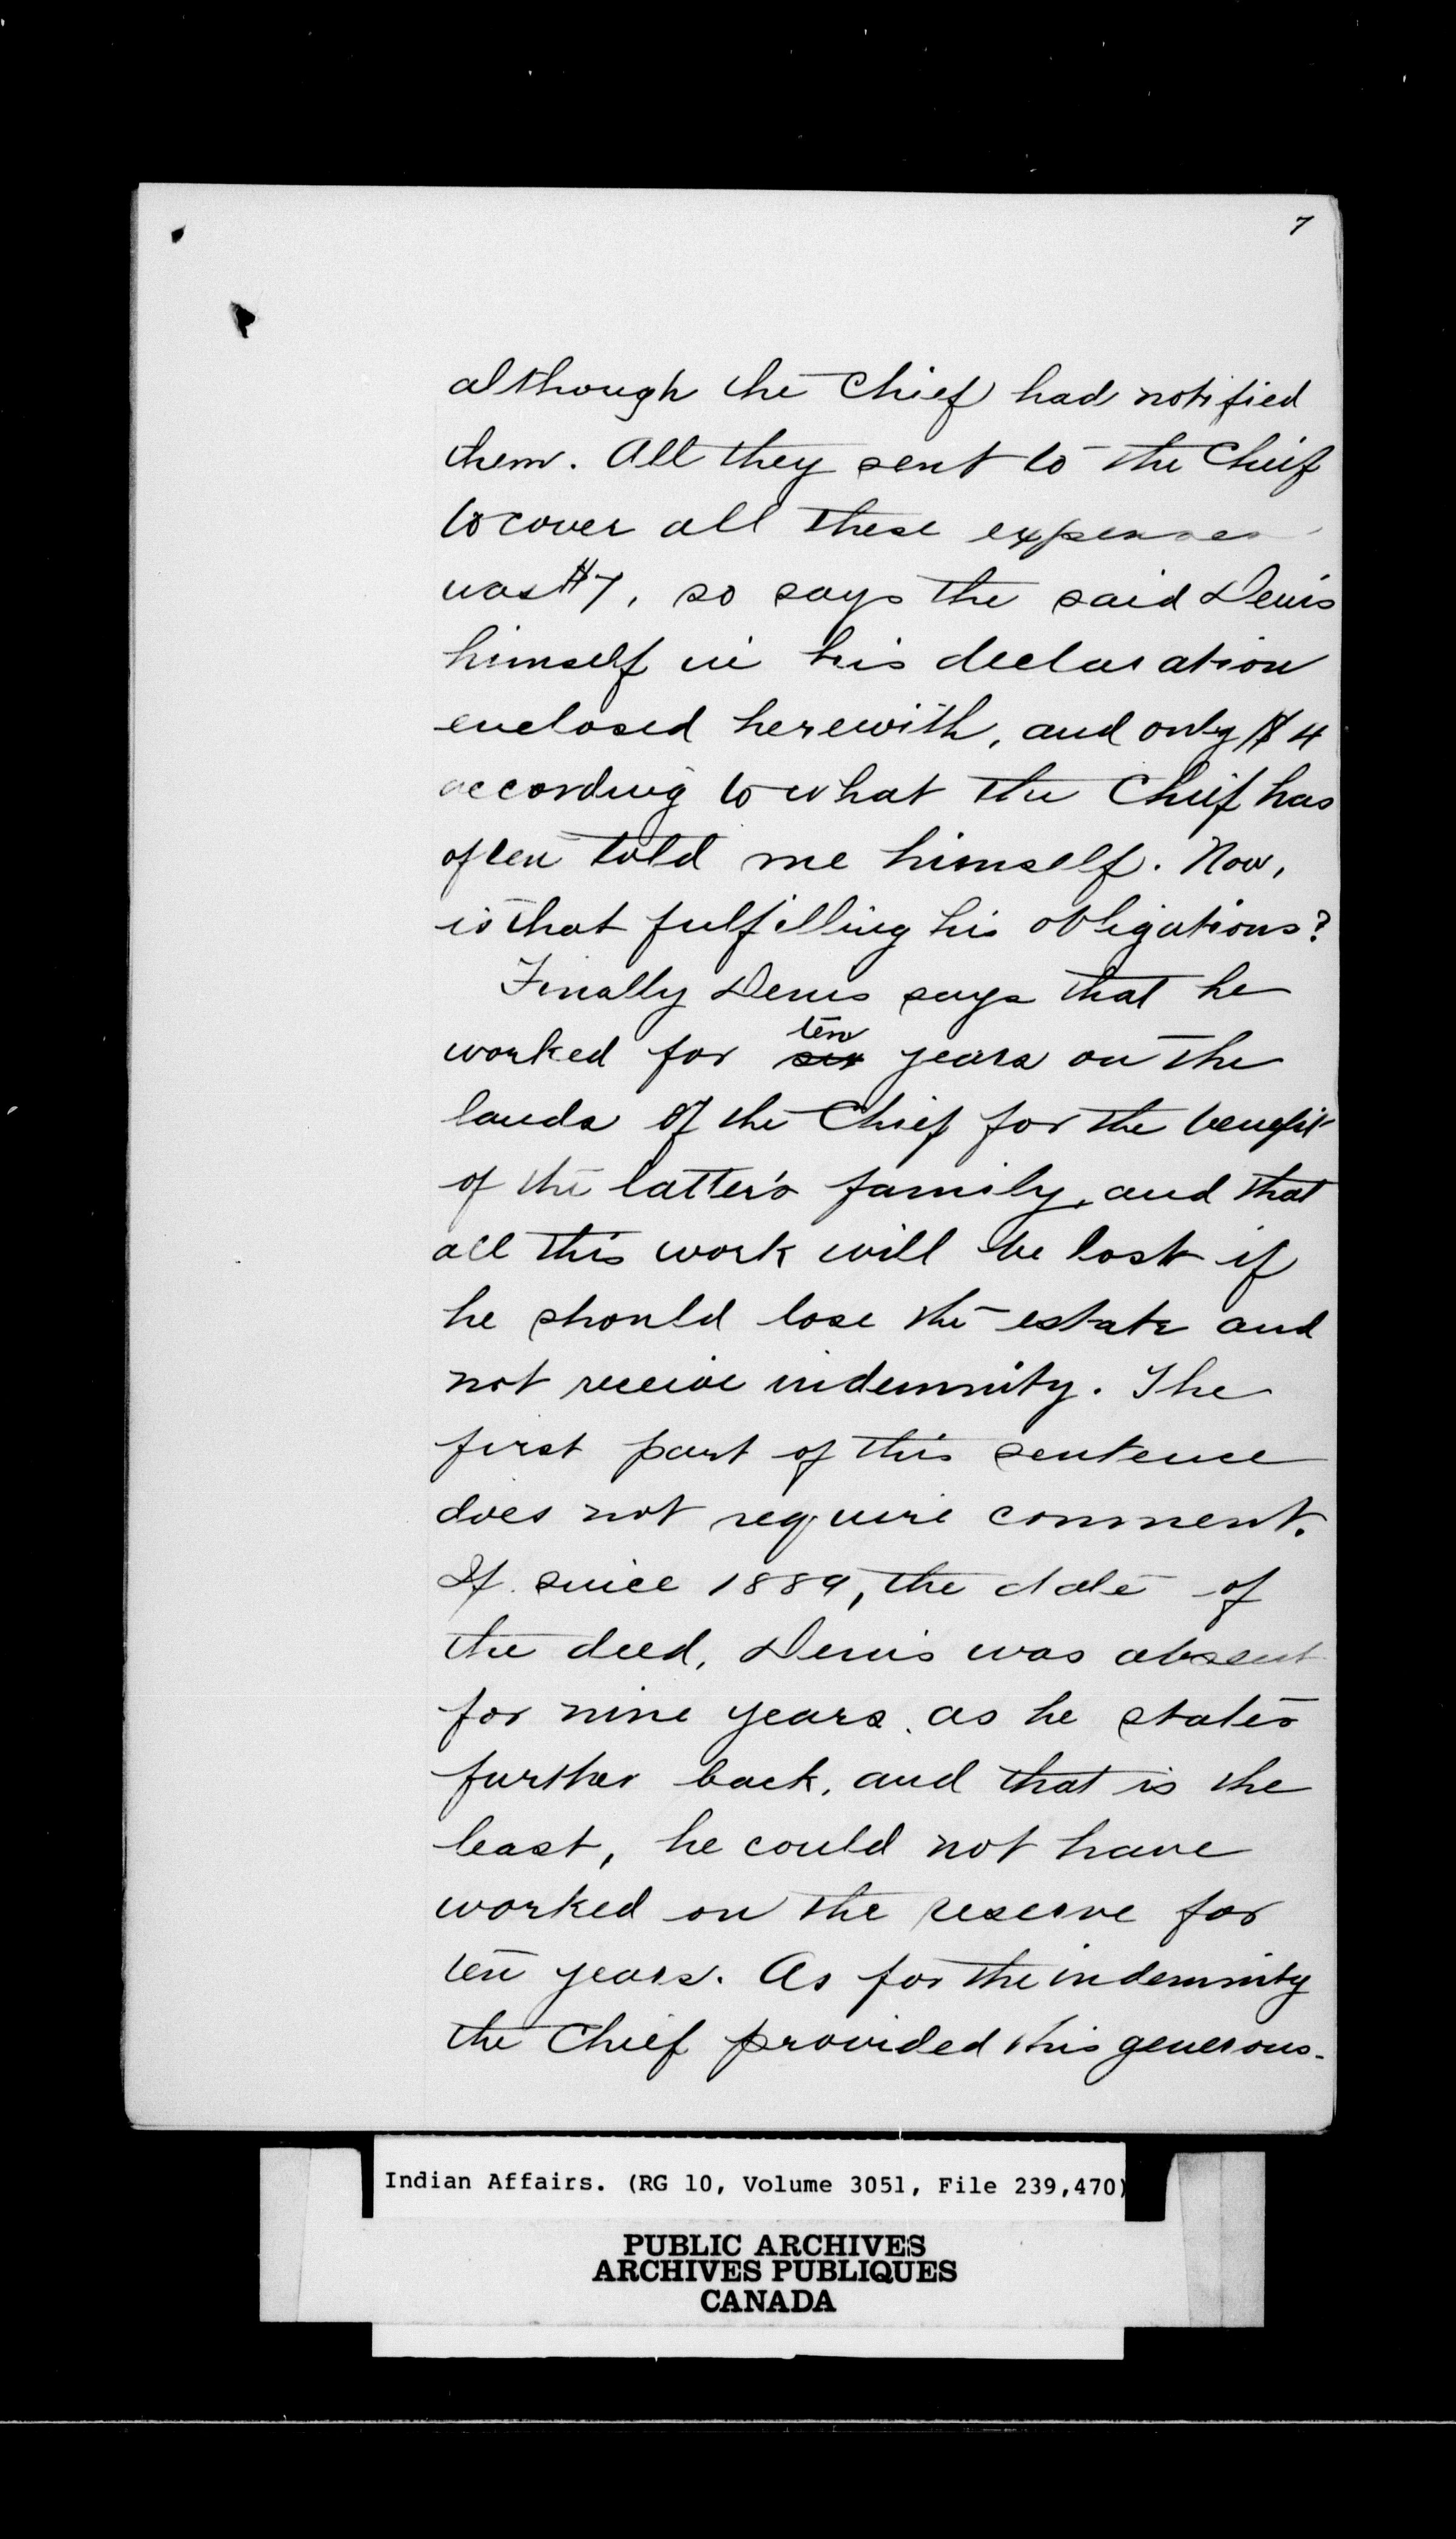 7
although the Chief had notified
them. All they sent to the Chief
to cover all these expenses
was $7, so says the said Denis
himself in his declaration
enclosed herewith, and only $4
according to what the Chief has
often told me himself. Now,
is that fulfilling his obligations?
Finally Denis says that he
ten
worked for six years on the
lands of the Chief for the benefit
of the latter's family, and that
all this work will be lost if
he should lose the estate and
not receive indemnity. The
first part of this sentence
does not require comment.
If since 1889, the date of
the deed, Denis was absent
for nine years, as he states
further back, and that is the
least, he could not have
worked on the reserve for
ten years. As for the indemnity
the Chief provided this generous-
Indian Affairs. (RG 10, Volume 3051, File 239,470)
PUBLIC ARCHIVES
ARCHIVES PUBLIQUES
CANADA